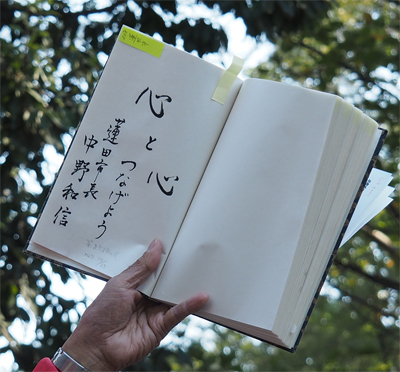 心と心
つなげよう
蓮田市長
中野和信